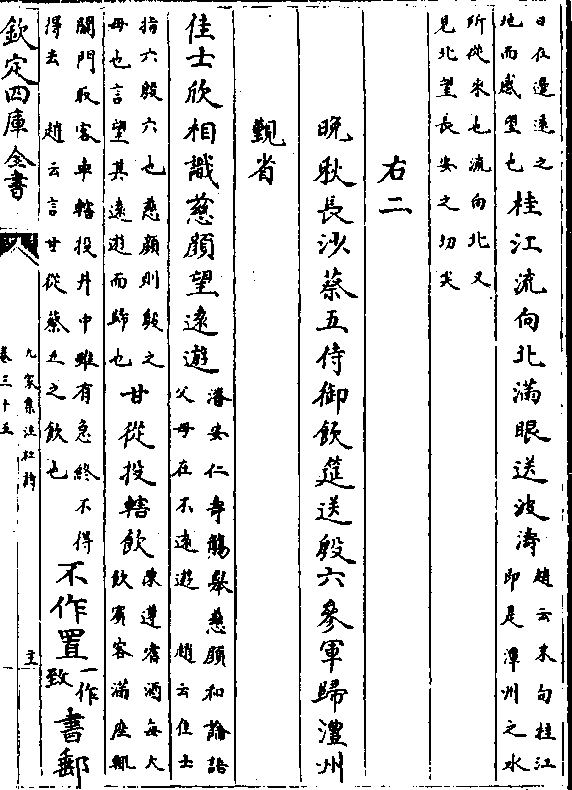 日在邊遠之
地而感望也
桂江流向北滿眼送波濤
趙云末句桂江
即是潭州之水
所從來也流向北又
見北望長安之切矣
右二
晚秋長沙蔡五侍御飲筵送殷六參軍歸澧州
覲省
佳士欣相識慈顔望遠遊
潘安仁壽觴舉慈顔和論語
父母在不遠遊 趙云佳士
指六殷六也慈顔則殷之
母也言望其遠遊而歸也
甘從投轄飲
陳遵嗜酒每大
飲賓客滿座輒
關門取客車轄投井中雖有急終不得
得去 趙云言甘從蔡五之飲也
不作置
一作
致
書郵
欽定四庫全書
九家集注杜詩
卷三十五